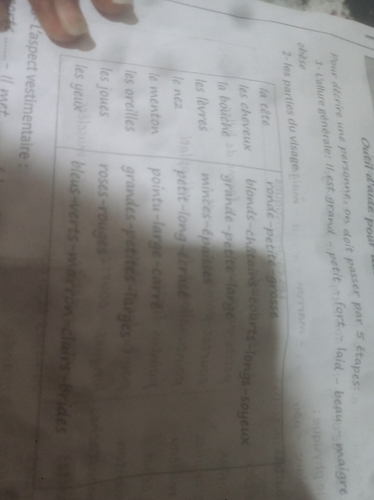 Outil d'aide pour
Pour décrire une personne, on doit passer par 5 étapes:
1- L'allure générale: Il est grand - petit - fort - laid - beau - maigre
obèse
2- les parties du visage
la tête ronde-petite-grosse
les cheveux blonds-chatains-courts-longs-soyeux
la bouche grande-petite-large
les lèvres minces-épaisses
le nez petit-long
le menton pointu-large-carré
les oreilles grandes-petites-larges
les joues roses-rouges
les yeux bleus-verts-marron-clairs-brides
L'aspect vestimentaire :
- Il met